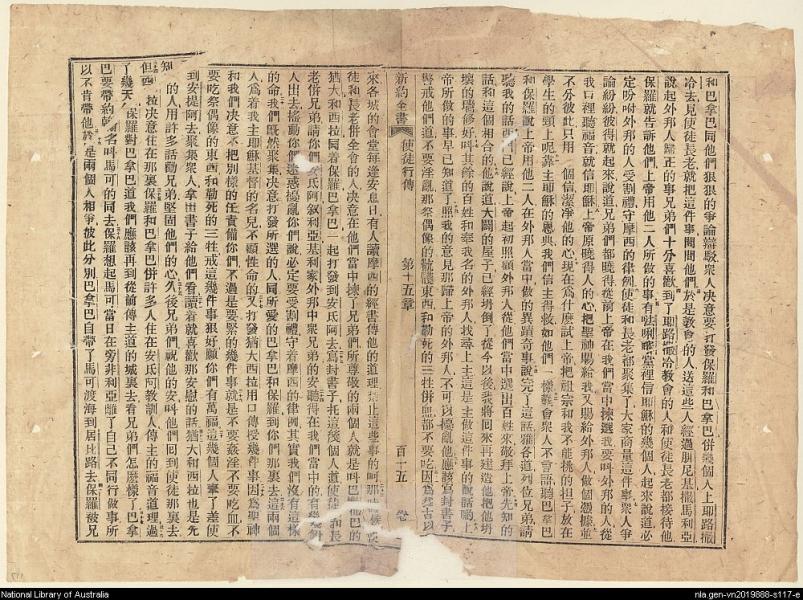 和巴拿巴同他們狠狠的爭論辯駁衆人决意要打發保羅和巴拿巴併幾個人上耶路撒
冷去見使徒長老就把這件事問問他們於是教會的人送這些人經過腓尼基撒馬利亞
說起外邦人歸正的事兄弟們十分喜歡到了耶路撒冷教會的人和使徒長老都接待他
保羅就告訴他們上帝用他二人所做的事有𠵽唎㘔黨裡信耶穌的幾個人起來說道必
定吩咐外邦的人受割禮守摩西的律例使徒和長老都聚集了大家商量這件事衆人爭
論紛紛彼得就起來說道兄弟們都曉得從前上帝在我們當中揀選我要呌外邦的人從
我口裡聽福音就信耶穌上帝原曉得人的心把聖神賜給我又賜給外邦人做個憑據並
不分彼此只用一個信潔淨他的心現在爲什麼試上帝把祖宗和我不能挑的担子放在
學生的頸上呢靠主耶穌的恩典我們信主得救如他們一樣衆人不會語聽巴拿巴
和保羅說上帝用他二人在外邦人當中做的異蹟奇事說完了這話雅各道列位兄弟請
聽我的話西門已經說上帝起初照顧外邦人從他們當中選出百姓來敬拜上帝先知的
話和這個相合的他說道大闢的屋子已經坍倒了從今以後我將回來再建造他把他坍
壞的墻修好呌其餘的百姓和奉我名的外邦人找尋上主這是主做這件事的說話呢上
帝所做的事早已知道了照我的意見那歸上帝的外邦人不可以擾亂他應該寫封書子
警戒他們道不要淫亂那祭偶像的東西和勒死的三牲併血都不要吃因爲從古以
新約全書 使徒行傳 第十五章 百十五 卷
來各城的會堂每逢安息日有人讀摩西的經書傳他的道理
徒和長老併全會的人决意在他們當中揀了兄弟們所尊敬的兩個人就是呌巴
猶大和西拉同着保羅巴拿巴一起打發到安氐阿去寫封書子托這幾個人道使徒和長
老併兄弟請你們安氐阿叙利亞基利家外邦中衆兄弟的安聽得在我們當中的有幾個
人出去搖動你們迷惑擾亂你們說必定要受割禮守着摩西的律例其實我們沒有這樣
的命我們旣然聚集决意打發所選的人同所愛的巴拿巴和保羅到你們那裏去這兩個
人爲着我主耶穌基督的名兒不顧性命的又打發猶大西拉用口傳授幾件事因爲聖神
和我們决意不把別樣的任責備你們不過是要緊的幾件事就是不要姦淫不要吃血不
要吃祭偶像的東西和勒死的三牲戒這幾件事狠好願你們有萬福這幾個人奉了差使
到安提阿去聚集衆人拿出書子給他們看讀着就喜歡那安慰的話猶大和西拉也是先
知的人用許多話勸兄弟堅固他們的心久後兄弟們祝他的安呌他們回到使徒那裏去
但西拉决意住在那裏保羅和巴拿巴併許多人住在安氐阿教訓人傳主的福音道理過
了幾天保羅對巴拿巴道我們應該再到從前傳主道的城裏去看兄弟們怎麼樣了巴拿
巴要帶約翰名呌馬可的同去保羅想起馬可當日在旁非利亞離了自己不同行做事所
以不肯帶他於是兩個人相爭彼此分別巴拿巴自帶了馬可渡海到居比路去保羅被兄
National Library of Australia
nla.gen-vn2019888-s117-e